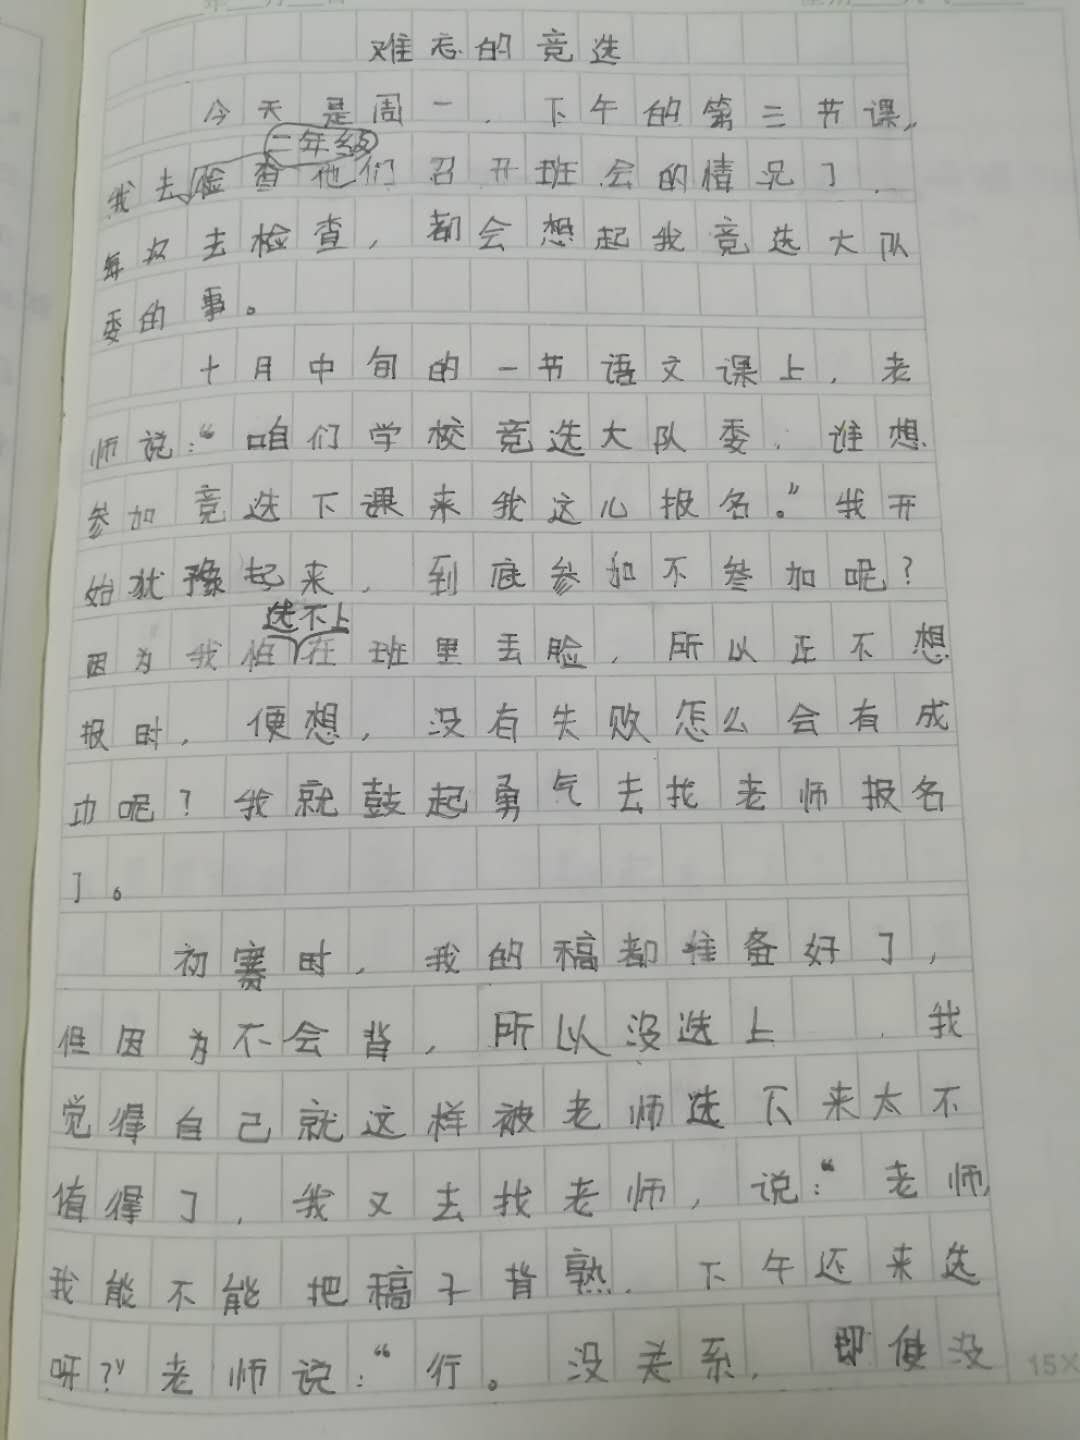 难忘的竞选
今天是周一，下午的第三节课，
二年级
我去检查他们召开班会的情况了，
每次去检查，都会想起我竞选大队
委的事。
十月中旬的一节语文课上，老
师说：“咱们学校竞选大队委，谁想
参加竞选下课来我这儿报名。”我开
始犹豫起来，到底参加不参加呢？
选不上
因为我怕在班里丢脸，所以正不想
报时，便想，没有失败怎么会有成
功呢？我就鼓起勇气去找老师报名
了。
初赛时，我的稿都准备好了，
但因为不会背，所以没选上，我
觉得自己就这样被老师选下来太不
值得了，我又去找老师，说：“老师，
我能不能把稿子背熟，下午还来选
呀？”老师说：“行。没关系，即使没
15X